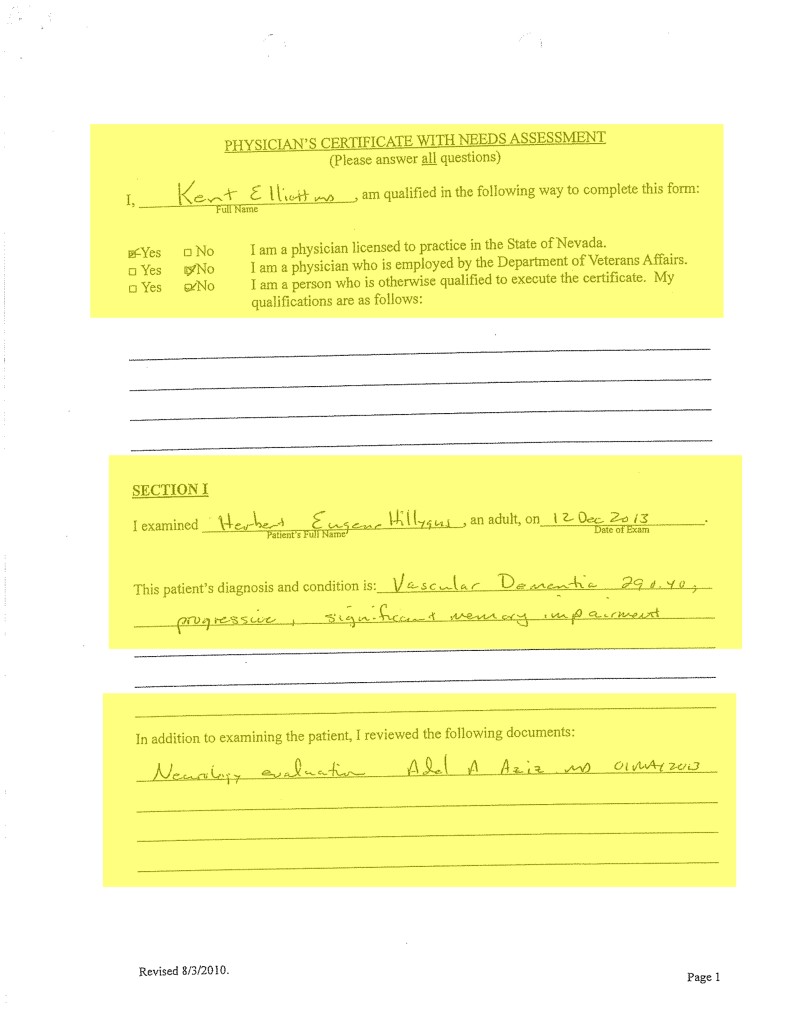 PHYSICIAN'S CERTIFICATE WITH NEEDS ASSESSMENT
(Please answer all questions)
I, Kent Elliott MD, am qualified in the following way to complete this form:
Full Name
☒ Yes ☐ No I am a physician licensed to practice in the State of Nevada.
☐ Yes ☒ No I am a physician who is employed by the Department of Veterans Affairs.
☐ Yes ☒ No I am a person who is otherwise qualified to execute the certificate. My
qualifications are as follows:
SECTION I
I examined Herbert Eugene Hillygus, an adult, on 12 Dec 2013.
Patient's Full Name Date of Exam
This patient's diagnosis and condition is: Vascular Dementia 290.40,
progressive, significant memory impairment
In addition to examining the patient, I reviewed the following documents:
Neurology evaluation Adel A Aziz MD 01MAY2013
Revised 8/3/2010.
Page 1